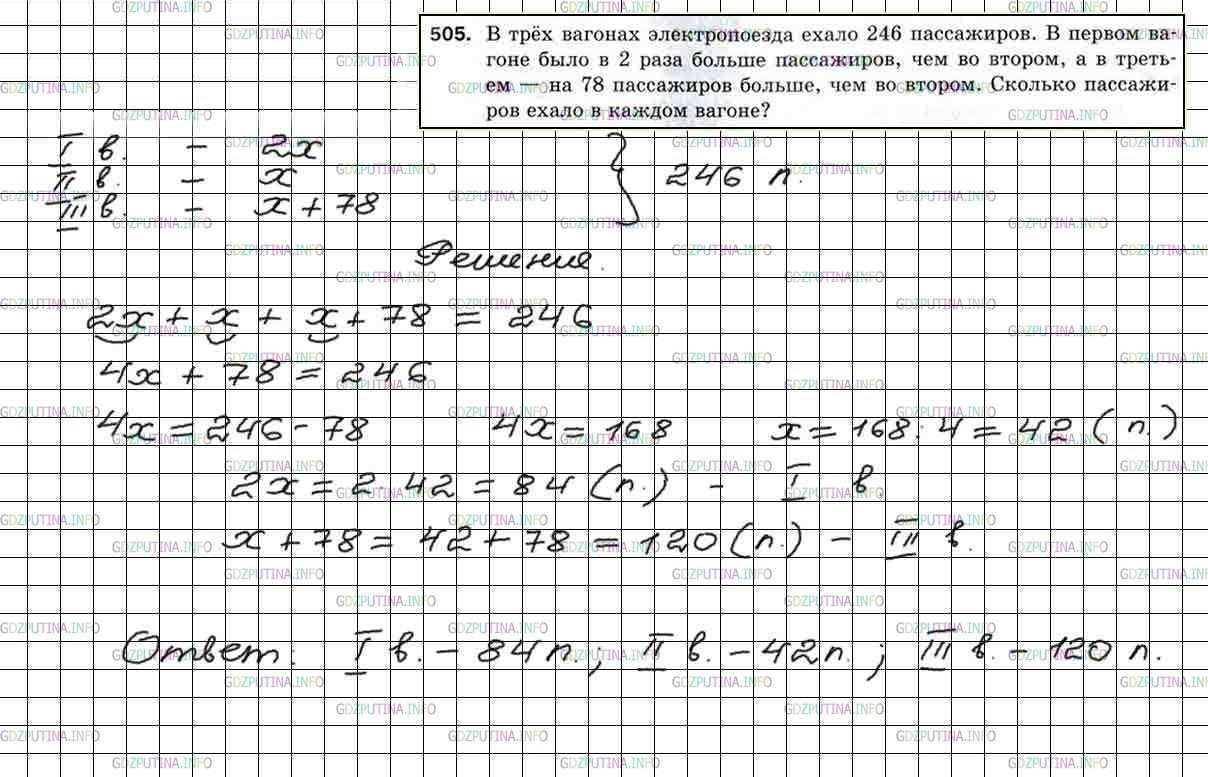 505. В трёх вагонах электропоезда ехало 246 пассажиров. В первом ва-
гоне было в 2 раза больше пассажиров, чем во втором, а в треть-
ем — на 78 пассажиров больше, чем во втором. Сколько пассажи-
ров ехало в каждом вагоне?
I в. – 2x
II в. – x
III в. – x + 78
} 246 п.
Решение.
2x + x + x + 78 = 246
4x + 78 = 246
4x = 246 - 78 4x = 168 x = 168 : 4 = 42 (п.)
2x = 2 · 42 = 84 (п.) – I в.
x + 78 = 42 + 78 = 120 (п.) – III в.
Ответ: I в. – 84 п.; II в. – 42 п.; III в. – 120 п.
GDZPUTINA.INFO